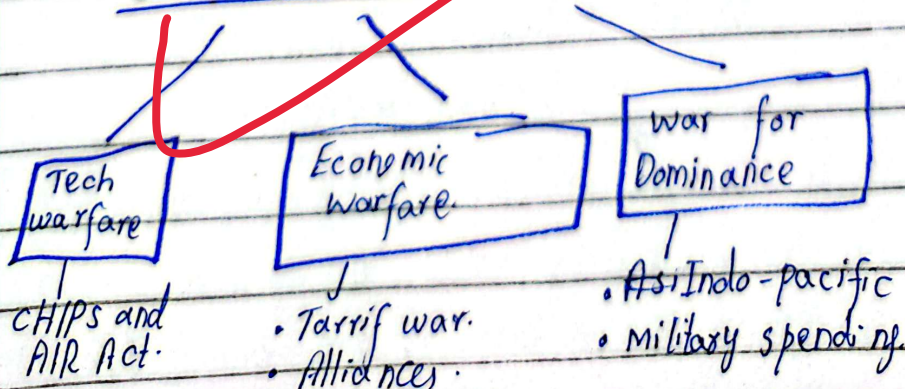 Tech
warfare
CHIPs and
AIR Act.
Economic
warfare.
• Tarrif war.
• Alliances.
war for
Dominance
• Asi Indo-pacific
• Military spending.